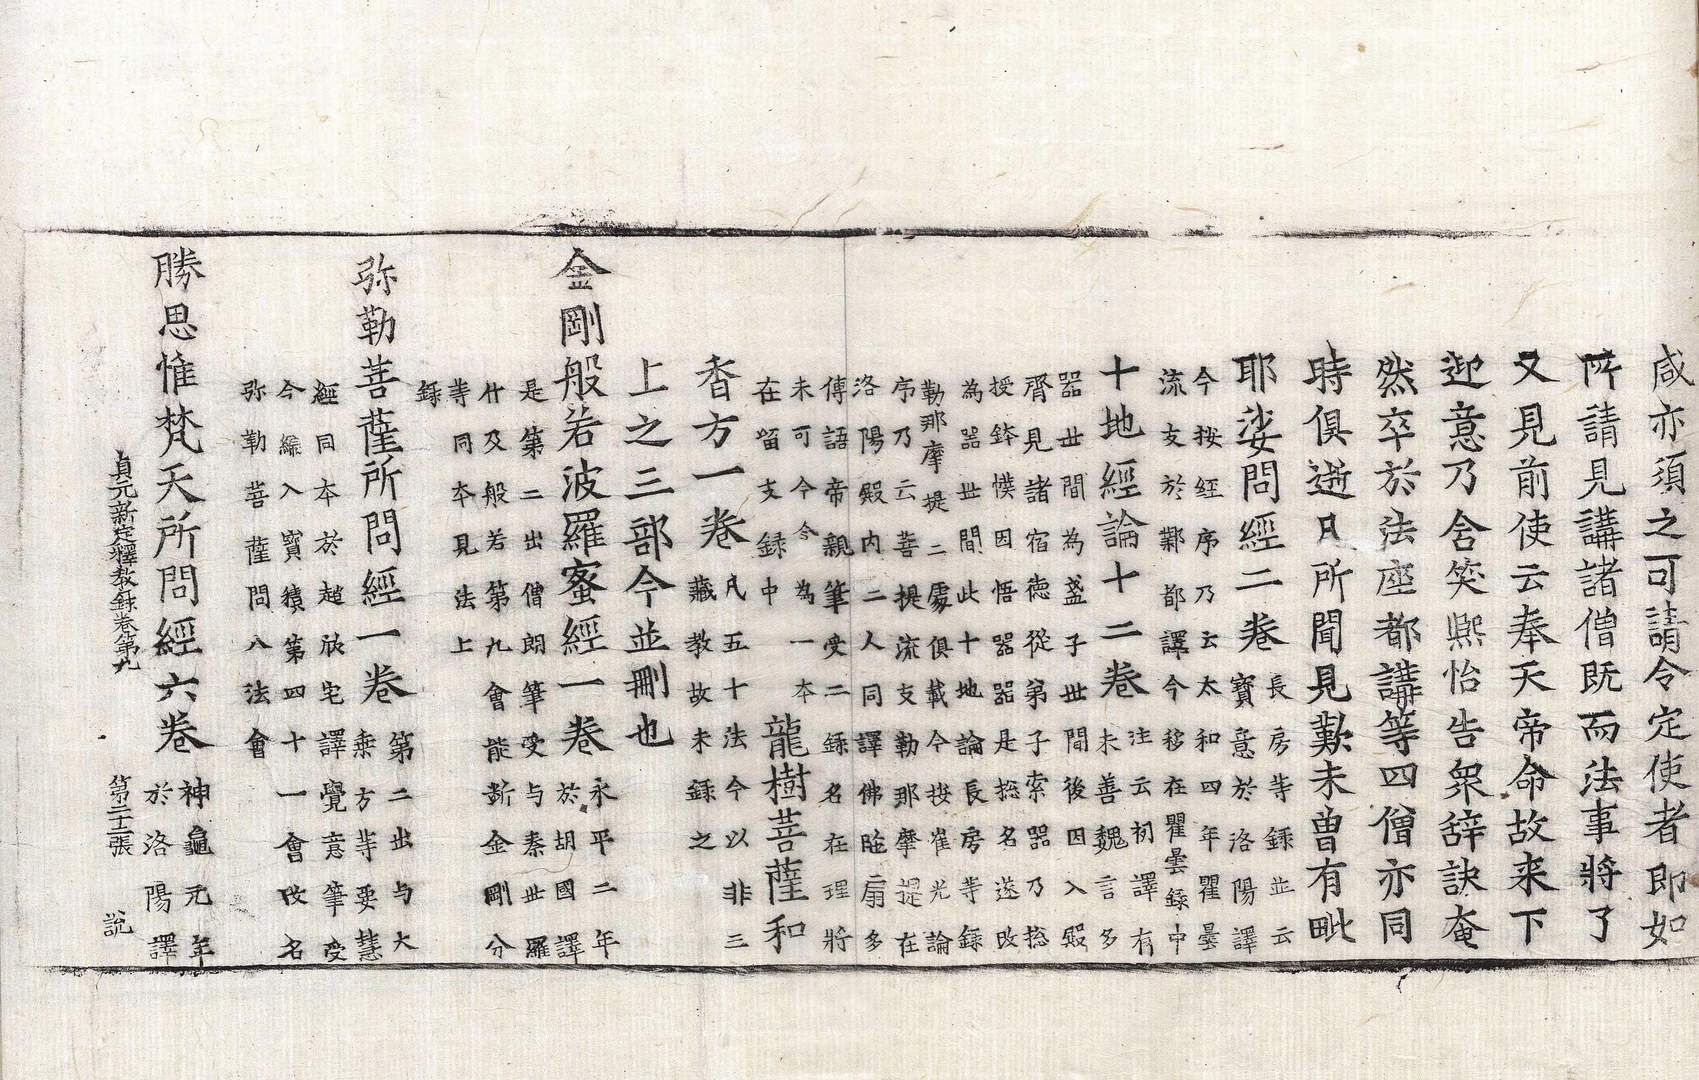 咸亦須之可請令定使者即如
所請見講諸僧既而法事將了
又見前使云奉天帝命故来下
迎意乃含笑熈怡告衆辞訣奄
然卒於法座都講等四僧亦同
時俱逝凡所聞見歎未曽有毗
耶娑問經二巻
長房等録並云
寶意於洛陽譯
今按經序乃云太和四年瞿曇
流支於鄴都譯今移在瞿曇録中
十地經論十二巻
注云初譯有
未善魏言多
器世間為盞子世間後因入殿
齊見諸宿德從弟子索器乃捴
授鉢幞因悟器器是捴名遂改
為器世間此十地論長房等録
勒那摩提二處俱載今按崔光論
序乃云菩提流支勒那摩提在
洛陽殿内二人同譯佛陁扇多
傳語帝親筆受二録名在理將
未可今今為一本
在留支録中
龍樹菩薩和
香方一巻
凡五十法今以非三
藏教故未録之
上之三部今並刪也
金剛般若波羅蜜經一巻
永平二年
於胡國譯
是第二出僧朗筆受与秦世羅
什及般若第九會能斷金剛分
等同本見法上
録
弥勒菩薩所問經一巻
第二出与大
乗方等要慧
經同本於趙欣宅譯覺意筆受
今編入寶積第四十一會改名
弥勒菩薩問八法會
勝思惟梵天所問經六巻
神龜元年
於洛陽譯
貞元新定釋教録巻第九 第二十二張 說